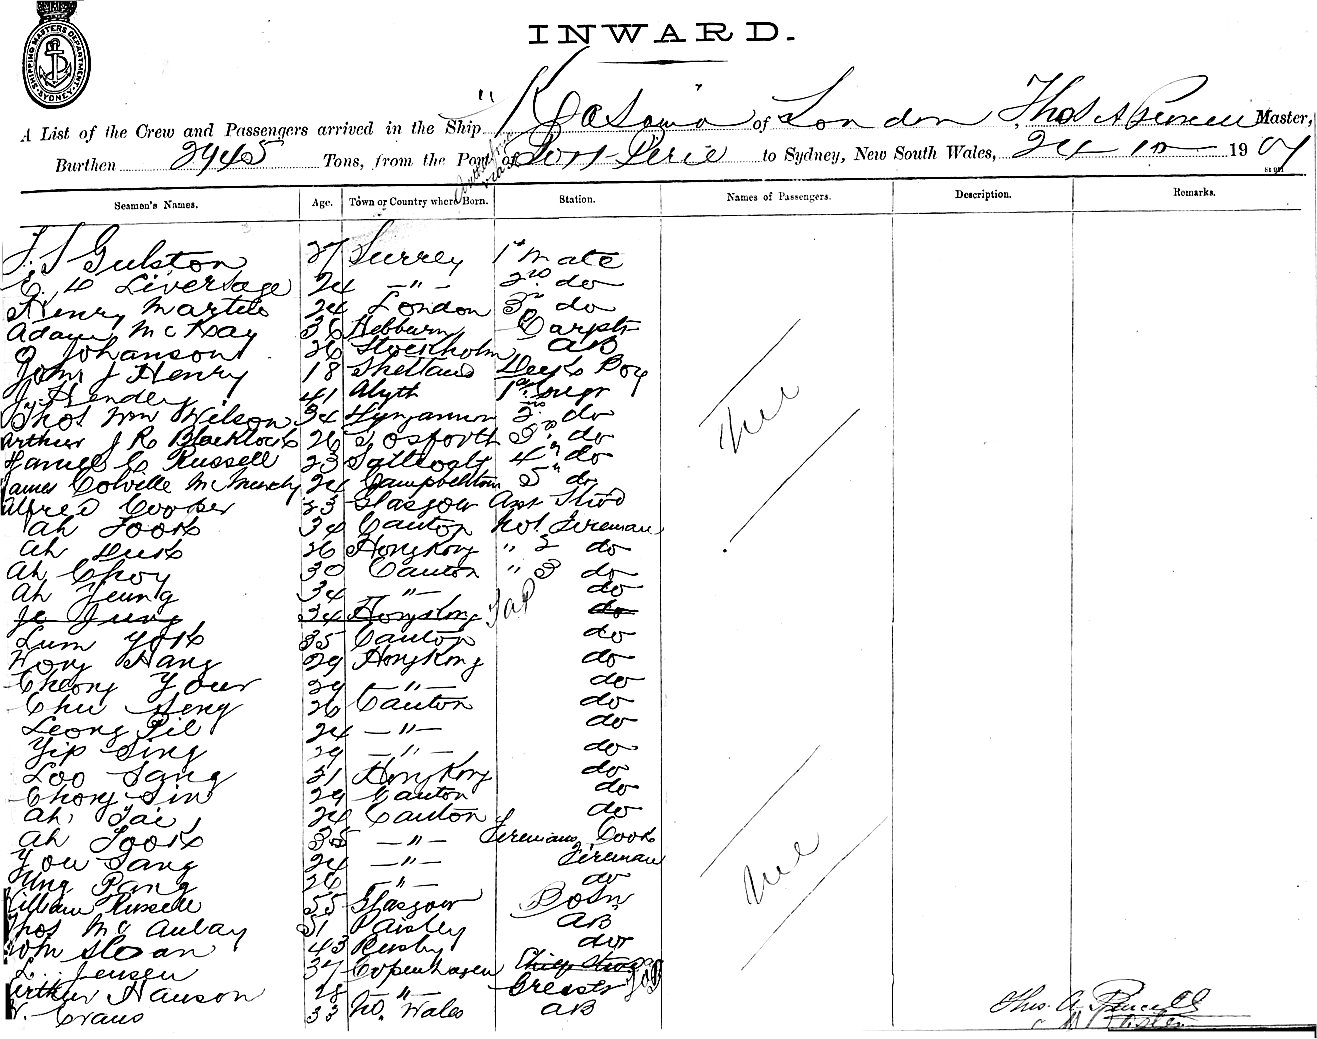 SHIPPING MASTERS DEPARTMENT SYDNEY
INWARD.
A List of the Crew and Passengers arrived in the Ship " of London Thos A Master,
Burthen 2945 Tons, from the Port of Port Pirie to Sydney, New South Wales, 24 190
Seamen's Names. Age. Town or Country where Born. Station. Names of Passengers. Description. Remarks.
Gulston 27 Surrey 1st Mate
Liversage 24 —"— 2nd do
Henry 24 London 3rd do
Adam McKay 36 Hebburn Carptr
Johanson 26 Stockholm AB
John J Henry 18 Deck Boy
J. Hendry 41 Alyth 1st Engr
Thos Wm Wilson 34 2nd do
Arthur J R Blacklock 26 Gosforth 3rd do
C Russell 23 Saltcoats 4th do
James Colville McMurchy 24 Campbeltown 5th do
Alfred Cooker 23 Glasgow Asst Stwd
Ah Fook 34 Canton No 1 Fireman
Ah 26 HongKong " 2 do
Ah Choy 30 Canton " 3 do
Ah Yeung 34 —"— do
Jung 34 HongKong do
Lum York 35 Canton do
Wong Hang 29 HongKong do
Cheong 29 —"— do
Chu Seng 26 Canton do
Leong 24 —"— do
Yip Sing 29 —"— do
Loo Sang 31 HongKong do
Chong Sin 29 Canton do
Ah Tai 24 Canton do
Ah Fook 35 —"— Firemans Cook
You Sang 24 —"— Fireman
Ung Pang 26 —"— do
William Russell 55 Glasgow Bosn
Thos McAulay 31 Paisley AB
John Sloan 43 Busby do
L. Jensen 37 Copenhagen
Arthur Hanson 28 —"— Greaser
Evans 33 No. Wales AB
Thos. A.